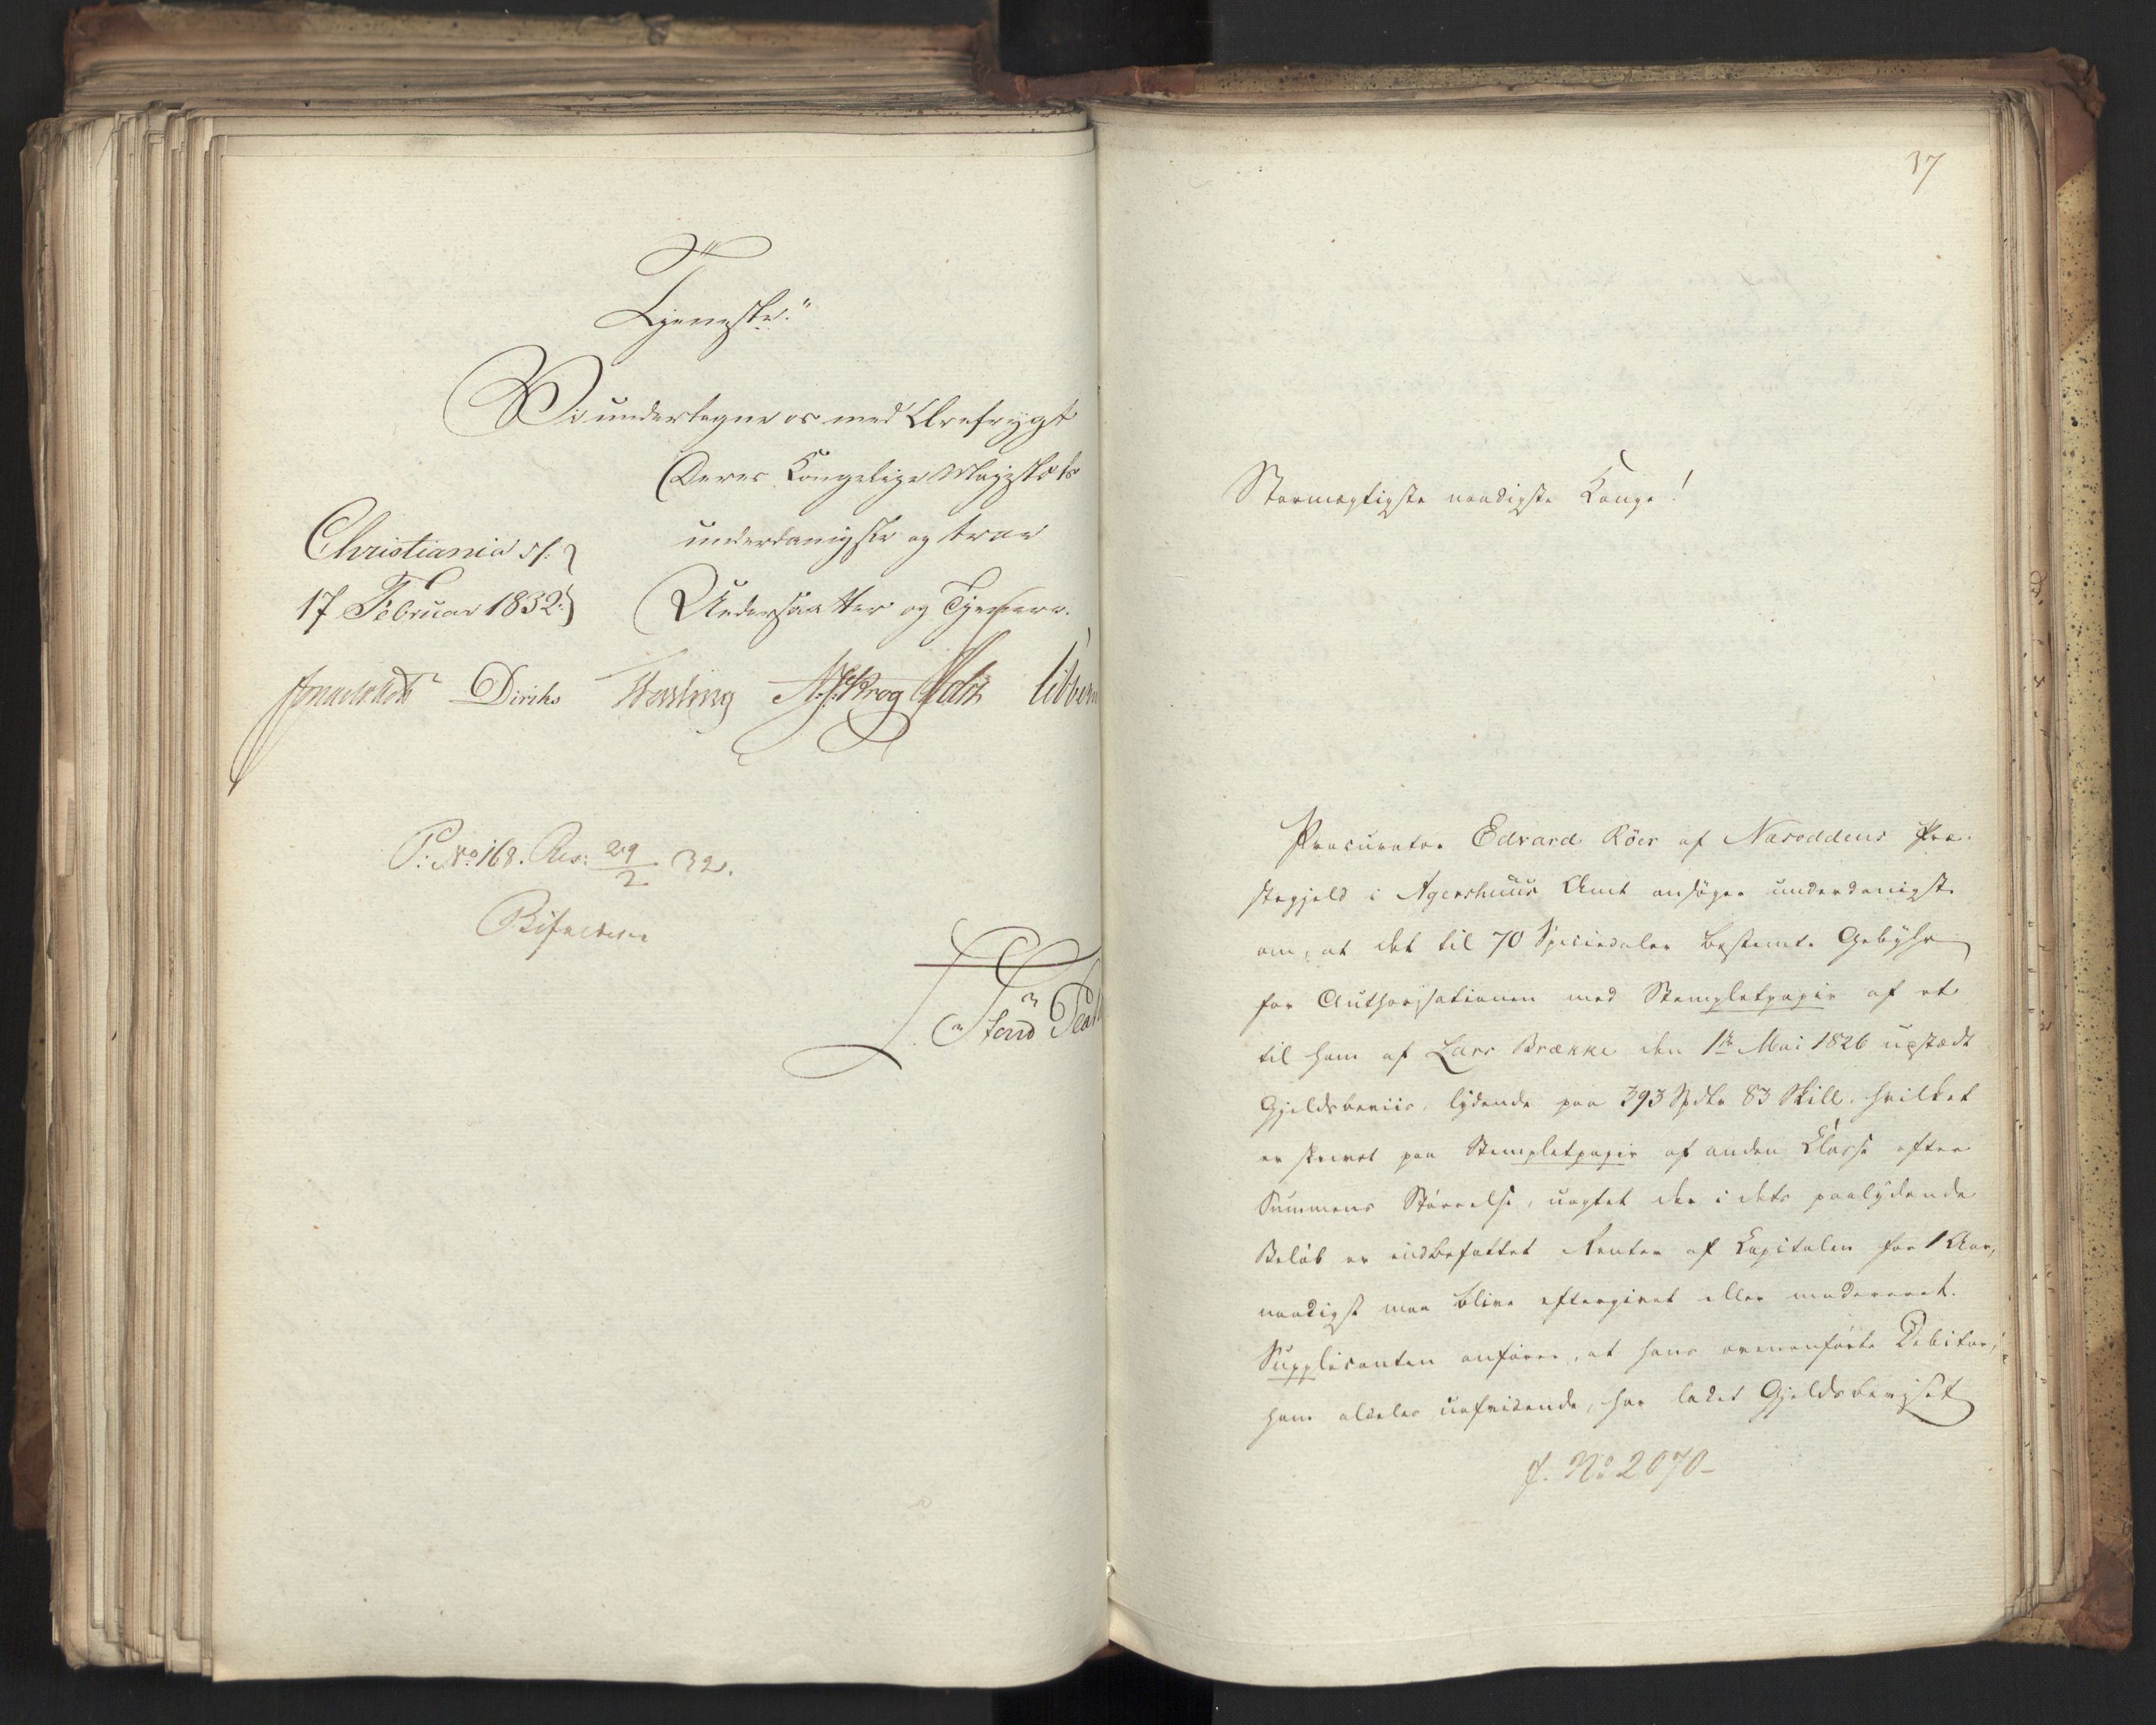 Tjeneste."
Vi undertegne os med Ærefrygt
Deres Kongelige Majestæts
underdanigste og troe
Undersaatter og Tjenere.
Christiania d.
17 Februar 1832.
Diriks N. J. Krog Holst
P: No 168. Res: 29/2 32.
Bifaldes
37
Stormægtigste naadigste Konge!
Procurator Edvard Röer af Næsoddens Præ-
stegjeld i Agershuus Amt ansøger underdanigst
om, at det til 70 Speciedaler bestemte Gebyhr
for Authorisationen med Stempletpapir af et
til ham af Lars Brække den 1ste Mai 1826 udstædt
Gjeldsbeviis, lydende paa 393 Spdlr 83 Skill. hvilket
er skrevet paa Stempletpapir af anden Classe efter
Summens Størrelse, uagtet der i dets paalydende
Beløb er indbefattet Renter af Capitalen for 1 Aar,
naadigst maa blive eftergivet eller modereret.
Supplicanten anfører, at hans ovenanførte Debitor,
ham aldeles uafvidende, har ladet Gjeldsbeviset
J. No 2070-